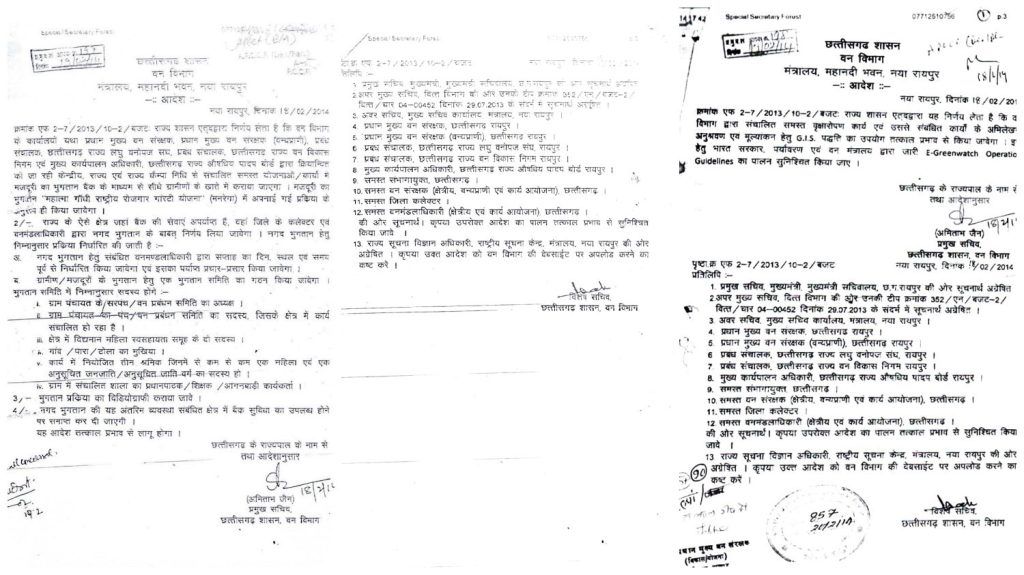 Special Secretary Forest
छत्तीसगढ़ शासन,
वन विभाग
मंत्रालय, महानदी भवन, नया रायपुर
—:: आदेश ::—
नया रायपुर, दिनांक 18/02/2014
क्रमांक एफ 2-7/2013/10-2/बजटः राज्य शासन एतद्द्वारा निर्णय लेता है कि वन विभाग
के कार्यालयों यथा प्रधान मुख्य वन संरक्षक, प्रधान मुख्य वन संरक्षक (वन्यप्राणी), प्रबंध
संचालक, छत्तीसगढ़ राज्य लघु वनोपज संघ, प्रबंध संचालक, छत्तीसगढ़ राज्य वन विकास
निगम एवं मुख्य कार्यपालन अधिकारी, छत्तीसगढ़ राज्य औषधिय पादप बोर्ड द्वारा क्रियान्वित
की जा रही केन्द्रीय, राज्य एवं राज्य कैम्पा निधि से संचालित समस्त योजनाओं/कार्यो में
मजदूरी का भुगतान बैंक के माध्यम से सीधे ग्रामीणों के खाते में कराया जाएगा । मजदूरी का
भुगतान "महात्मा गाँधी राष्ट्रीय रोजगार गारंटी योजना" (मनरेगा) में अपनाई गई प्रक्रिया के
अनुरूप ही किया जावेगा ।
2/— राज्य के ऐसे क्षेत्र जहां बैंक की सेवाएं अपर्याप्त है, वहां जिले के कलेक्टर एवं
वनमंडलाधिकारी द्वारा नगद भुगतान के बाबत् निर्णय लिया जावेगा । नगद भुगतान हेतु
निम्नानुसार प्रक्रिया निर्धारित की जाती है :—
अ. नगद भुगतान हेतु संबंधित वनमण्डलाधिकारी द्वारा सप्ताह का दिन, स्थल एवं समय
पूर्व से निर्धारित किया जावेगा एवं इसका पर्याप्त प्रचार-प्रसार किया जावेगा ।
ब. ग्रामीण/मजदूरों के भुगतान हेतु एक भुगतान समिति का गठन किया जावेगा ।
भुगतान समिति में निम्नानुसार सदस्य होंगे —
i. ग्राम पंचायत के/सरपंच/वन प्रबंधन समिति का अध्यक्ष ।
ii. ग्राम पंचायत का पंच/वन प्रबंधन समिति का सदस्य, जिसके क्षेत्र में कार्य
संचालित हो रहा है ।
iii. क्षेत्र में विद्यमान महिला स्वसहायता समूह के दो सदस्य ।
iv. गांव /पारा/टोला का मुखिया ।
v. कार्य में नियोजित तीन श्रमिक जिनमें से कम से कम एक महिला एवं एक
अनुसूचित जनजाति/अनुसूचित जाति वर्ग का सदस्य हो ।
iv. ग्राम में संचालित शाला का प्रधानपाठक/शिक्षक /आंगनबाड़ी कार्यकर्ता ।
3/— भुगतान प्रक्रिया का विडियोग्राफी कराया जावे ।
4/— नगद भुगतान की यह अंतरिम व्यवस्था संबंधित क्षेत्र में बैंक सुविधा का उपलब्ध होने
पर समाप्त कर दी जाएगी ।
यह आदेश तत्काल प्रभाव से लागू होगा ।
छत्तीसगढ़ के राज्यपाल के नाम से
तथा आदेशानुसार
18/2/14
(अमिताभ जैन)
प्रमुख सचिव,
छत्तीसगढ़ शासन, वन विभाग
Special Secretary Forest
क्र. एफ 2-7/2013/10-2/बजट
प्रतिलिपि :—
1. प्रमुख सचिव, मुख्यमंत्री, मुख्यमंत्री सचिवालय, छ.ग.रायपुर की ओर सूचनार्थ अग्रेषित
2.अपर मुख्य सचिव, वित्त विभाग की ओर उनकी टीप क्रमांक 352/एन/बजट-2/
वित्त/चार 04-00452 दिनांक 29.07.2013 के संदर्भ में सूचनार्थ अग्रेषित ।
3. अवर सचिव, मुख्य सचिव कार्यालय, मंत्रालय, नया रायपुर ।
4. प्रधान मुख्य वन संरक्षक, छत्तीसगढ़ रायपुर ।
5. प्रधान मुख्य वन संरक्षक (वन्यप्राणी), छत्तीसगढ़ रायपुर ।
6. प्रबंध संचालक, छत्तीसगढ़ राज्य लघु वनोपज संघ, रायपुर ।
7. प्रबंध संचालक, छत्तीसगढ़ राज्य वन विकास निगम रायपुर ।
8. मुख्य कार्यपालन अधिकारी, छत्तीसगढ़ राज्य औषधिय पादप बोर्ड रायपुर ।
9. समस्त संभागायुक्त, छत्तीसगढ़ ।
10. समस्त वन संरक्षक (क्षेत्रीय, वन्यप्राणी एवं कार्य आयोजना), छत्तीसगढ़ ।
11. समस्त जिला कलेक्टर ।
12. समस्त वनमंडलाधिकारी (क्षेत्रीय एवं कार्य आयोजना), छत्तीसगढ़ ।
की ओर सूचनार्थ। कृपया उपरोक्त आदेश का पालन तत्काल प्रभाव से सुनिश्चित
किया जावे ।
13. राज्य सूचना विज्ञान अधिकारी, राष्ट्रीय सूचना केन्द्र, मंत्रालय, नया रायपुर की ओर
अग्रेषित । कृपया उक्त आदेश को वन विभाग की वेबसाईट पर अपलोड करने का
कष्ट करें ।
विशेष सचिव,
छत्तीसगढ़ शासन, वन विभाग
Special Secretary Forest 07712510756 1 p.3
छत्तीसगढ़ शासन
वन विभाग
मंत्रालय, महानदी भवन, नया रायपुर
—:: आदेश ::—
18/2/14
नया रायपुर, दिनांक 18/02/201
क्रमांक एफ 2-7/2013/10-2/बजटः राज्य शासन एतद्द्वारा यह निर्णय लेता है कि व
विभाग द्वारा संचालित समस्त वृक्षारोपण कार्य एवं उससे संबंधित कार्यो के अभिलेख
अनुश्रवण एवं मूल्यांकन हेतु G.I.S. पद्धति का उपयोग तत्काल प्रभाव से किया जावेगा । इ
हेतु भारत सरकार, पर्यावरण एवं वन मंत्रालय द्वारा जारी E-Greenwatch Operatio
Guidelines का पालन सुनिश्चित किया जाए ।
छत्तीसगढ़ के राज्यपाल के नाम से
तथा आदेशानुसार
18/2/1
(अमिताभ जैन)
प्रमुख सचिव,
छत्तीसगढ़ शासन, वन विभाग
पृष्ठा.क्र एफ 2-7/2013/10-2/बजट नया रायपुर, दिनांक 18/02/2014
प्रतिलिपि :—
1. प्रमुख सचिव, मुख्यमंत्री, मुख्यमंत्री सचिवालय, छ.ग.रायपुर की ओर सूचनार्थ अग्रेषित
2.अपर मुख्य सचिव, वित्त विभाग की ओर उनकी टीप क्रमांक 352/एन/बजट-2/
वित्त/चार 04-00452 दिनांक 29.07.2013 के संदर्भ में सूचनार्थ अग्रेषित ।
3. अवर सचिव, मुख्य सचिव कार्यालय, मंत्रालय, नया रायपुर ।
4. प्रधान मुख्य वन संरक्षक, छत्तीसगढ़ रायपुर ।
5. प्रधान मुख्य वन संरक्षक (वन्यप्राणी), छत्तीसगढ़ रायपुर ।
6 प्रबंध संचालक, छत्तीसगढ़ राज्य लघु वनोपज संघ, रायपुर ।
7. प्रबंध संचालक, छत्तीसगढ़ राज्य वन विकास निगम रायपुर ।
8. मुख्य कार्यपालन अधिकारी, छत्तीसगढ़ राज्य औषधिय पादप बोर्ड रायपुर ।
9. समस्त संभागायुक्त, छत्तीसगढ़ ।
10. समस्त वन संरक्षक (क्षेत्रीय, वन्यप्राणी एवं कार्य आयोजना), छत्तीसगढ़ ।
11. समस्त जिला कलेक्टर ।
12. समस्त वनमंडलाधिकारी (क्षेत्रीय एवं कार्य आयोजना), छत्तीसगढ़ ।
की ओर सूचनार्थ। कृपया उपरोक्त आदेश का पालन तत्काल प्रभाव से सुनिश्चित किया
जावे ।
13 राज्य सूचना विज्ञान अधिकारी, राष्ट्रीय सूचना केन्द्र, मंत्रालय, नया रायपुर की ओर
अग्रेषित । कृपया उक्त आदेश को वन विभाग की वेबसाईट पर अपलोड करने का
कष्ट करें ।
90
857
20/2/14
विशेष सचिव,
छत्तीसगढ़ शासन, वन विभाग
प्रधान मुख्य वन संरक्षक